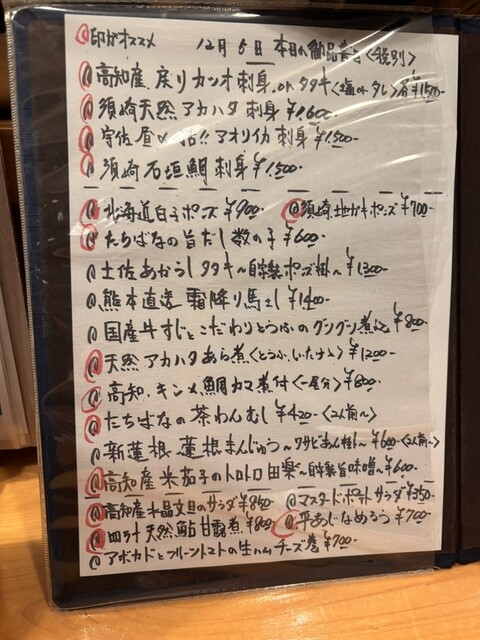 ◎印がオススメ 12月5日 本日の御品書き<税別>
◎高知産 戻りカツオ刺身 or タタキ<塩orタレ>各¥1500-
◎須崎天然アカハタ刺身¥1,600-
◎宇佐 アオリイカ刺身¥1,500-
◎須崎石垣鯛刺身¥1,500
◎北海道白子ポン酢¥900- ◎須崎地ガキポン酢¥700-
◎たちばなの旨だし数の子¥600-
◎土佐あかうしタタキ〜自家製ポン酢掛〜¥1300-
◎熊本直送 霜降り馬刺し¥1400-
◎国産牛すじとこだわりとうふのグツグツ煮込¥800-
◎天然アカハタあら煮<とうふ、しいたけ>¥1200-
◎高知.キンメ鯛カマ煮付<一尾分>¥800-
◎たちばなの茶わんむし¥420-<2人前〜>
◎新蓮根 蓮根まんじゅう〜ワサビあん掛け〜¥600-<2人前〜>
◎高知産 米茄子のトロトロ田楽〜自家製旨味噌〜¥600-
◎高知産水晶文旦のサラダ¥850 ◎マスタードポテトサラダ¥350-
◎四万十天然鮎甘露煮¥800- ◎平あじなめろう¥700-
◎アボカドとフルーツトマトの生ハムチーズ巻¥700-